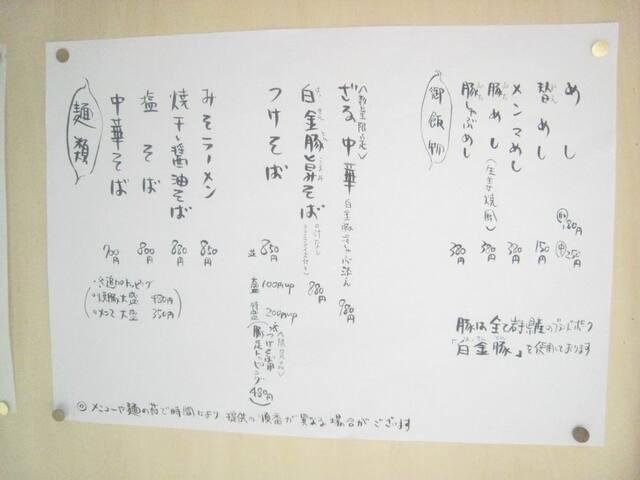 麺類
中華そば 700円
塩そば 800円
焼干し醤油そば 880円
みそラーメン 850円
・追加トッピング
・焼豚大盛 480円
・メンマ大盛 350円
つけそば 並 850円
大盛 100円up
特盛 200円up
〈限定品〉
つけそば用
豚足トッピング 480円
白金豚と昇そば 880円
〈数量限定〉
ざる中華 980円
御飯物
めし
小 180円
中 250円
替めし 150円
メンマめし 380円
豚めし(生姜焼風) 380円
豚しゃぶめし 380円
豚は全て岩手県産のブランドポーク
「白金豚」を使用しております
◎メニューや麺の茹で時間により提供の順番が異なる場合がございます